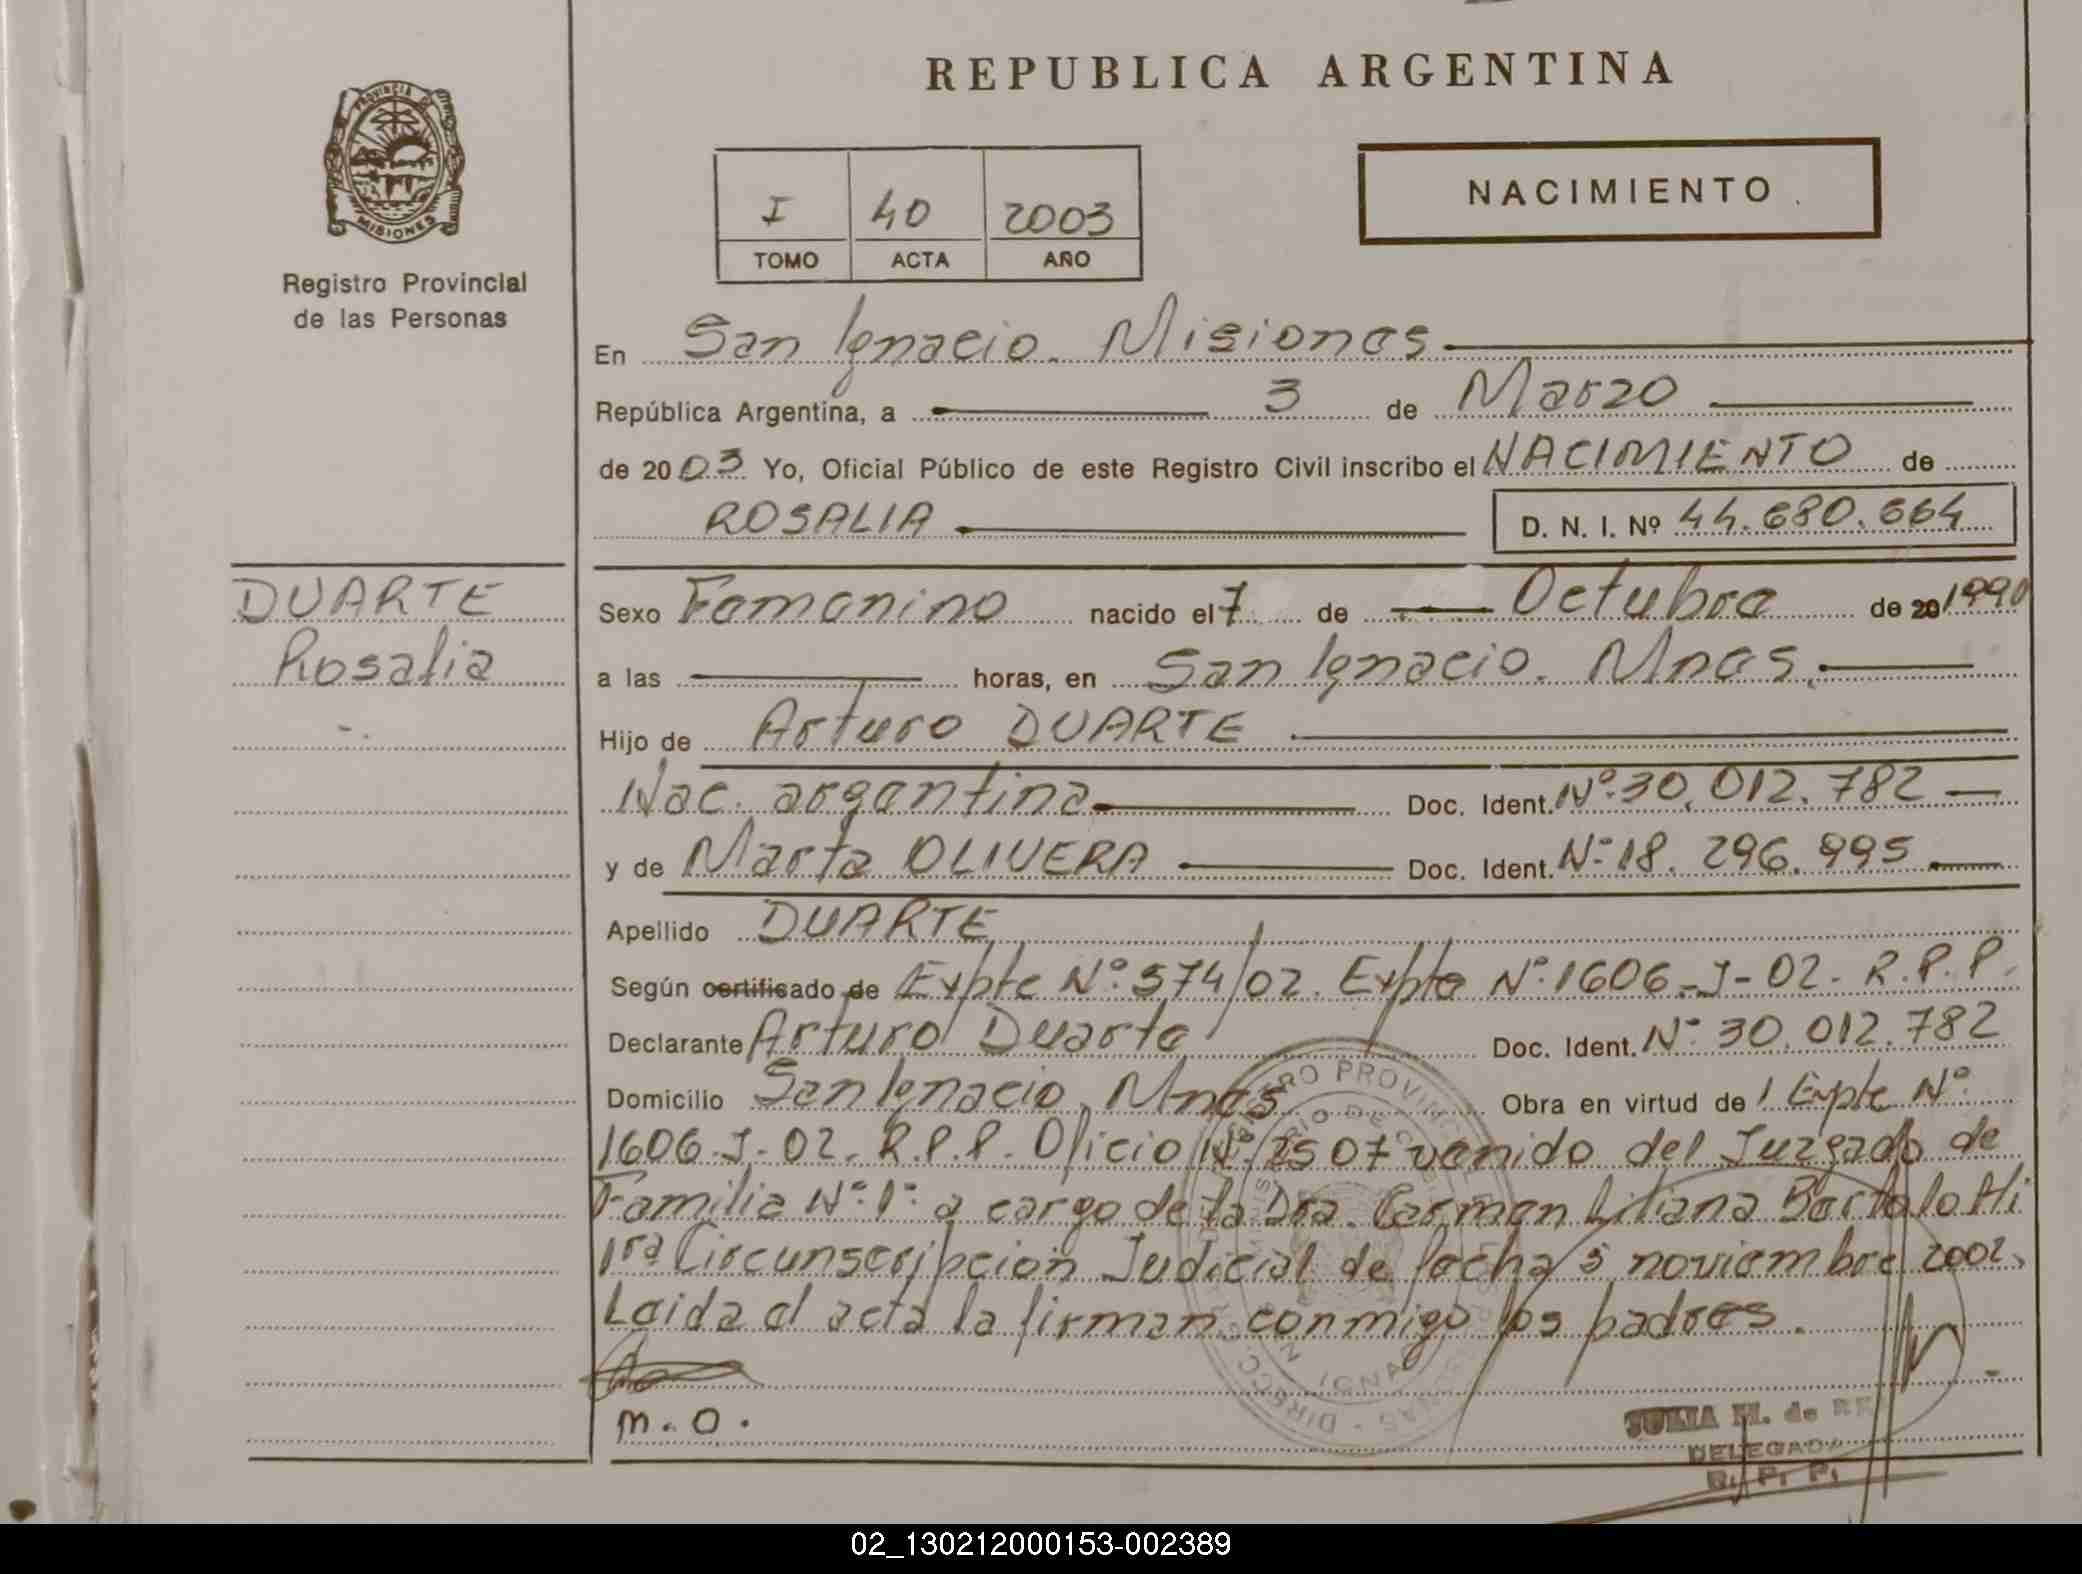 REPUBLICA ARGENTINA
PROVINCIA DE
MISIONES
Registro Provincial
de las Personas
I 40 2003
TOMO ACTA AÑO
NACIMIENTO
En San Ignacio. Misiones
República Argentina, a 3 de Marzo
de 2003 Yo, Oficial Público de este Registro Civil inscribo el NACIMIENTO de
ROSALIA D. N. I. Nº 44.680.664
DUARTE
Rosalia
Sexo Femenino nacido el 7 de Octubre de 20 1990
a las horas, en San Ignacio. Mnes.
Hijo de Arturo DUARTE
Nac. argentina Doc. Ident. Nº 30.012.782
y de Marta OLIVERA Doc. Ident. Nº 18.296.995
Apellido DUARTE
Según certificado de Expte Nº 574/02. Expte Nº 1606-J-02. R.P.P.
Declarante Arturo Duarte Doc. Ident. Nº 30.012.782
Domicilio San Ignacio. Mnes Obra en virtud de 1 Expte Nº
1606-J-02. R.P.P. Oficio Nº 2507 venido del Juzgado de
Familia Nº 1º a cargo de la Dra. Carmen Liliana Bartolotti
1ra Circunscripcion Judicial de fecha 5 noviembre 2002.
Leida el acta la firman conmigo los padres.
m.o.
JULIA M. de
DELEGADA
R. P. P.
02_130212000153-002389